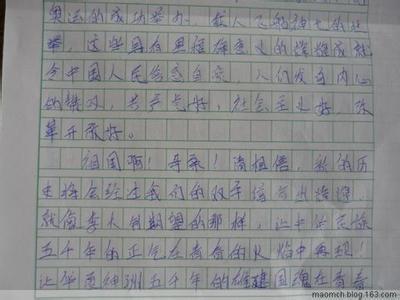 奥运的成功举办,在人飞船神七的壮
举,这些具有里程碑意义的辉煌成就
令中国人民倍感自豪,人们发自内心
的赞叹,共产党好,社会主义好,改
革开放好。
祖国啊!母亲!请相信,新的历
史将会经过我们的双手续写出辉煌,
就像李大钊期望的那样,让中华民族
五千年的正气在青春的火焰中再现!
让华夏神洲五千年的雄魂国魂在青春
maomch.blog.163.com